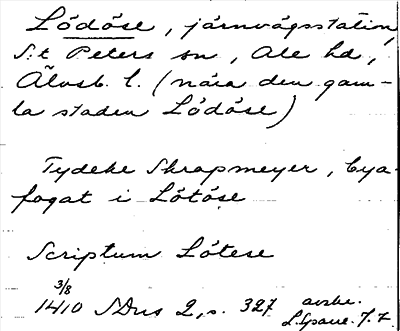 Lödöse, järnvägsstation,
S:t Peters sn, Ale hd,
Älvsb. l. (nära den gam-
la staden Lödöse)
Tydeke Skrapmeyer, bya-
fogat i Lötöse
Scriptum Lötese
3/8
1410 SDns 2, s. 327 avskr.